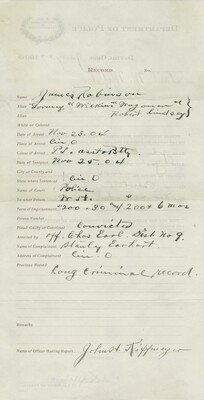 RECORD.
No.
Name James Robinson
Alias "William
Alias Robert Lindsey
White or Colored
Date of Arrest Nov 23. 04
Place of Arrest Cin. O
Cause of Arrest
Date of Sentence Nov 25. 04
City or County and
State where Sentenced Cin. O
Name of Court Police
To what Prison W. H.
Term of Imprisonment 200 + 6 mos
Prison Number
Plead Guilty or Convicted Convicted
Arrested by Off. Chas Earl. Dist No 9.
Name of Complainant Stanley Earhart.
Address of Complainant Cin. O
Previous Record
Long Criminal record.
Remarks
Name of Officer Making Report
John H.